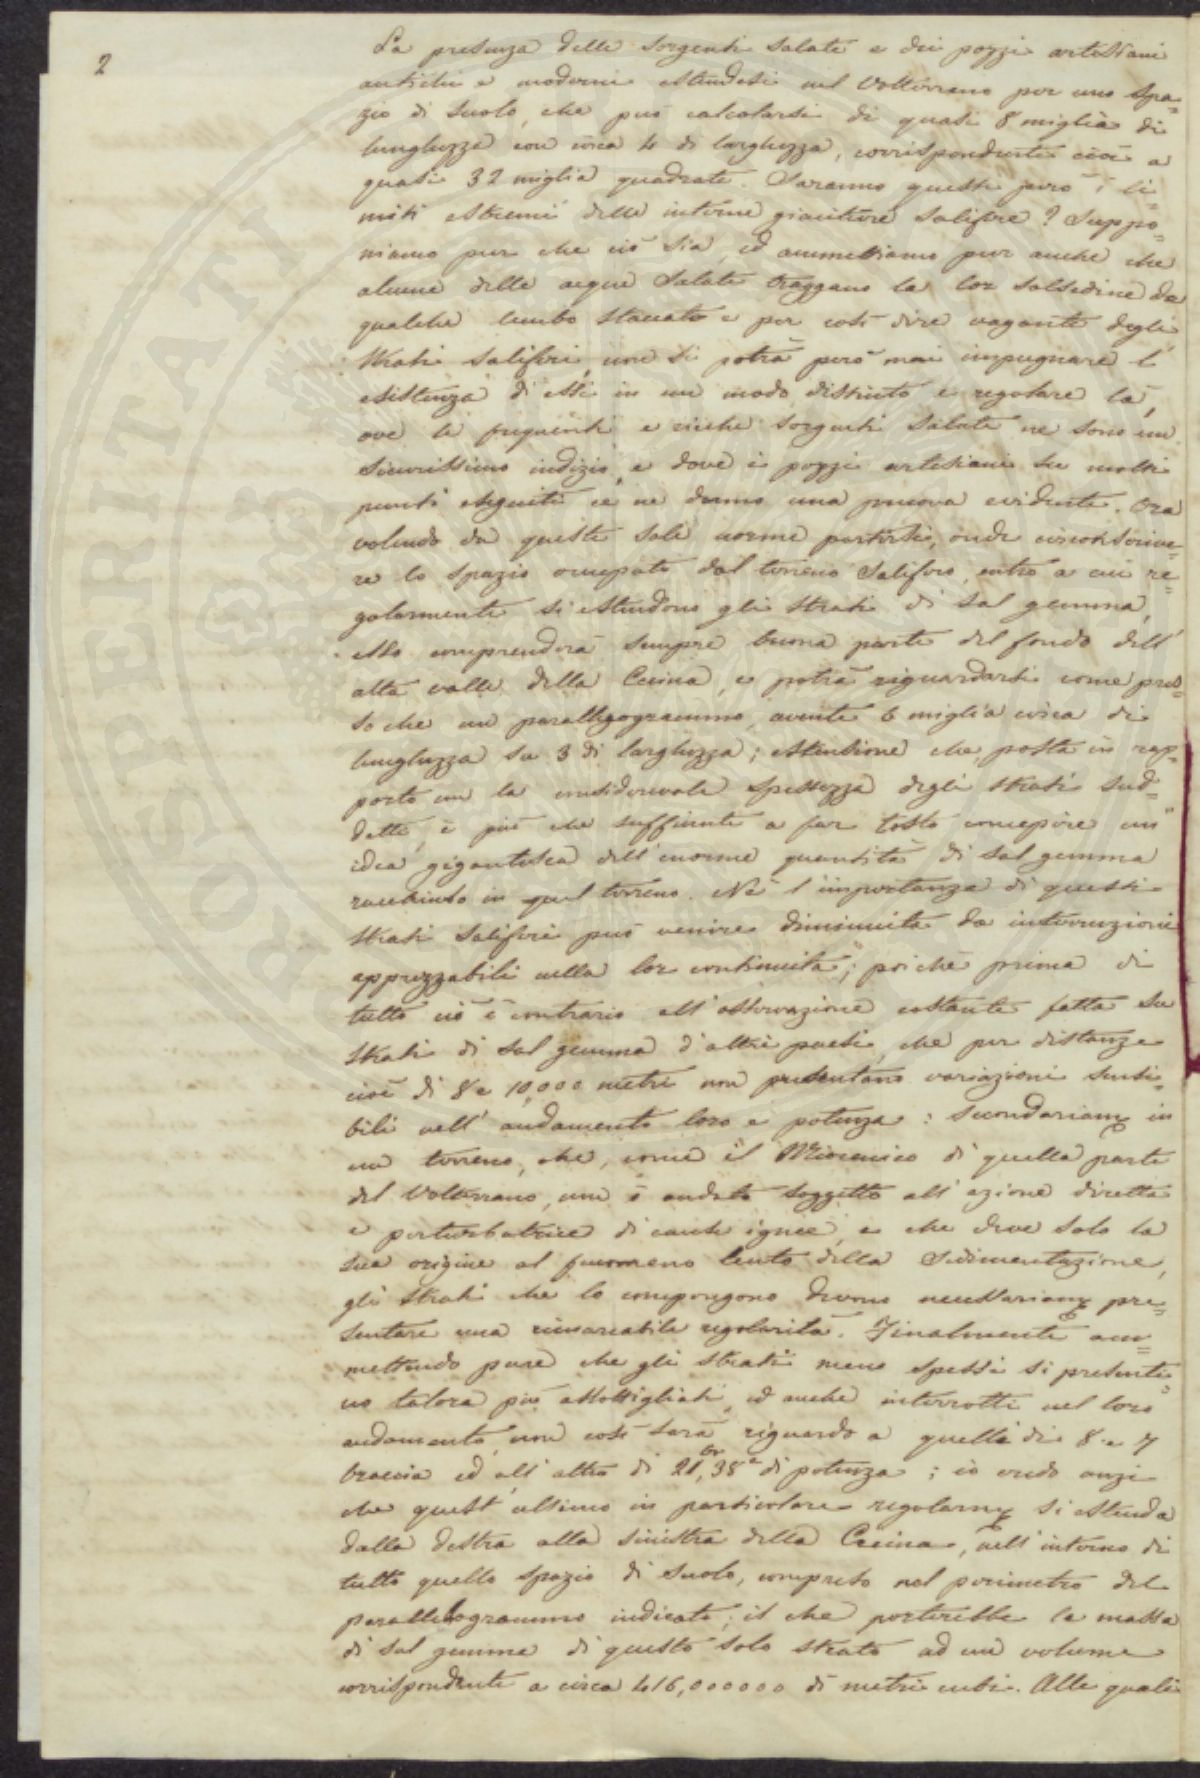 2
La presenza delle sorgenti salate e dei pozzi artesiani
antichi e moderni estendesi nel Volterrano per uno spa=
zio di suolo, che può calcolarsi di quasi 8 miglia di
lunghezza con circa 4 di larghezza, corrispondente cioè a
quasi 32 miglia quadrate. Saranno questi però i li=
miti estremi delle interne giaciture salifere? Suppo=
niamo pur che ciò sia, ed ammettiamo pur anche che
alcune delle acque salate traggano la lor salsedine da
qualche lembo staccato e per così dire vagante degli
strati saliferi, non si potrà però mai impugnare l'
esistenza di essi in un modo distinto e regolare là,
ove le frequenti e ricche sorgenti salate ne sono un
sicurissimo indizio, e dove i pozzi artesiani su molti
punti eseguiti ce ne danno una pruova evidente. Ora
volendo da queste sole norme partirsi, onde circonscrive=
re lo spazio occupato dal terreno salifero, entro a cui re=
golarmente si estendono gli strati di sal gemma,
esso comprenderà sempre buona parte del fondo dell'
alta valle della Cecina, e potrà riguardarsi come pres=
so che un parallegogrammo, avente 6 miglia circa di
lunghezza su 3 di larghezza; estensione che, posta in rap=
porto con la considerevole spessezza degli strati sud=
detti, è più che sufficiente a far tosto concepire un'
idea gigantesca dell'enorme quantità di sal gemma
racchiuso in quel terreno. Nè l'importanza di questi
strati saliferi può venire diminuita da interruzioni
apprezzabili nella lor continuità; poichè prima di
tutto ciò è contrario all'osservazione costante fatta su
strati di sal gemma d'altri paesi, che per distanze
cioè di 8 e 10,000 metri non presentano variazioni sensi=
bili nell'andamento loro e potenza: secondariam.e in
un terreno, che, come il Miocenico di quella parte
del Volterrano, non è andato soggetto all'azione diretta
e perturbatrice di cause ignee, e che deve solo la
sua origine al fenomeno lento della sedimentazione,
gli strati che lo compongono devono necessariam.e pre=
sentare una rimarcabile regolarità. Finalmente am=
mettendo pure che gli strati meno spessi si presenti=
no talora più assottigliati, ed anche interrotti nel loro
andamento, non così sarà riguardo a quelli di 8 e 7
braccia ed all'altro di 21,br 38 di potenza; io credo anzi
che quest'ultimo in particolare regolarm.e si estenda
dalla destra alla sinistra della Cecina, nell'interno di
tutto quello spazio di suolo, compreso nel perimetro del
parallelogrammo indicato; il che porterebbe la massa
di sal gemma di questo solo strato ad un volume
corrispondente a circa 416,000000 di metri cubi. Alle quali